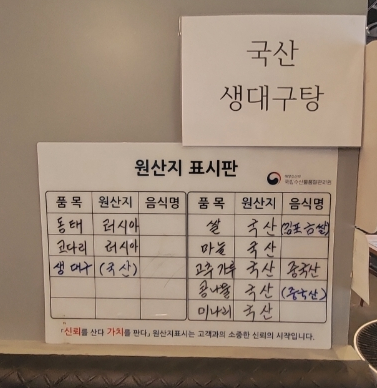 국산
생대구탕
원산지 표시판
품목 원산지 음식명 품목 원산지 음식명
동태 러시아 쌀 국산
코다리 러시아 마늘 국산
생대구 (국산) 고추가루 국산 중국산
콩나물 국산 (중국산)
미나리 국산
「신뢰를 산다 가치를 판다」 원산지표시는 고객과의 소중한 신뢰의 시작입니다.